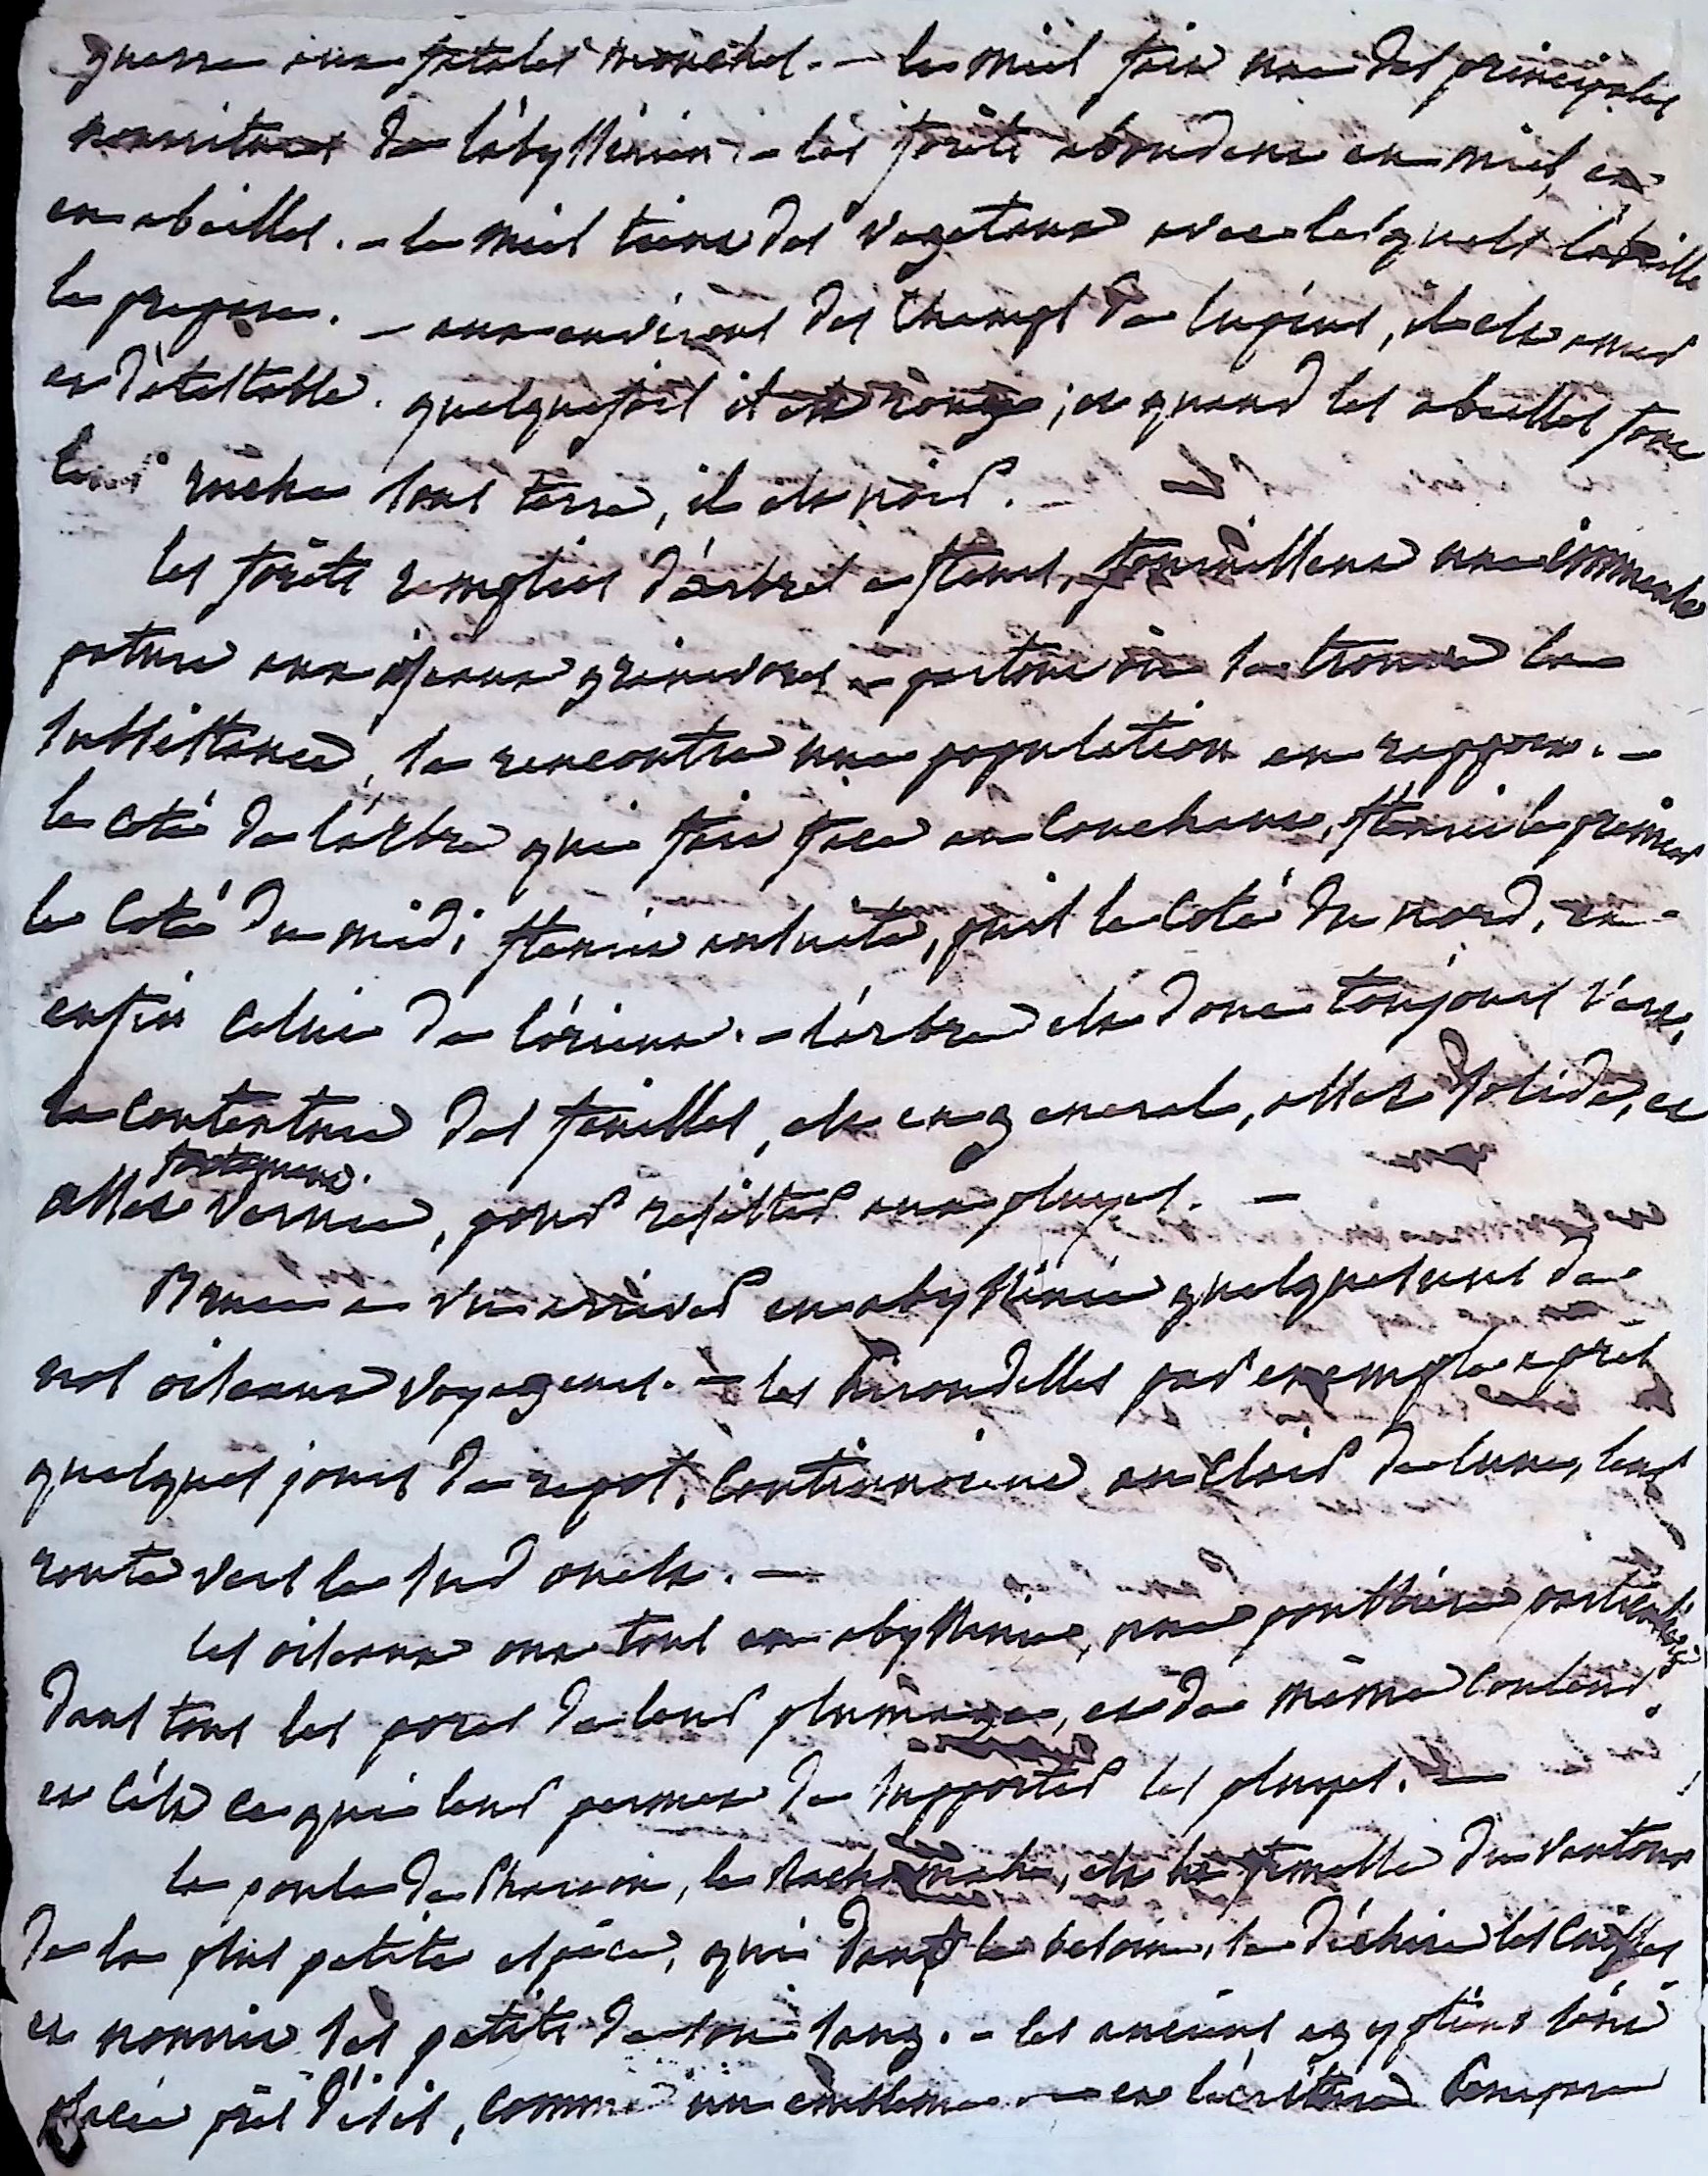 guerre aux fatales mouches. — le miel fait une des principales
nourritures de l'abyssinien. – les forêts abondent en miel, et
en abeilles. – le miel tient des vegetaux avec lesquels l'abeille
le prepare. — aux environs des champs de lupins, il est amer
et détestable. quelquefois il est rouge ; et quand les abeilles font
leur ruche sous terre, il est noir. —
les forêts remplies d'arbres a fleurs, fournissent une immense
pature aux oiseaux granivores – partout où se trouve la
subsistance, se rencontre une population en rapport. –
le coté de l'arbre qui fait face au couchant, fleurit le premier
le coté du midi fleurit ensuite, puis le coté du nord, et
enfin celui de l'orient. – l'arbre est donc toujours vert.
la contexture des feuilles, est en general, assez solide, et
assez vernie, pour resister aux pluyes. —
Bruce a vu arriver en abyssinie quelques uns de
nos oiseaux voyageurs. – les hirondelles par exemple après
quelques jours de repos, continuoient au clair de lune, leur
route vers le sud ouest. —
les oiseaux ont tous en abyssinie, une poussière particulière
dans tous les pores de leur plumage, et de même couleur.
et c'est ce qui leur permet de supporter les pluyes. —
la poule de Pharaon, le Rachamah, est la femelle du vautour
de la plus petite espèce, qui dans le besoin, se déchire les cuisses
et nourrit ses petits de son sang. – les anciens egyptiens l'ont
placé près d'isis, comme un emblème. — et l'écriture compare